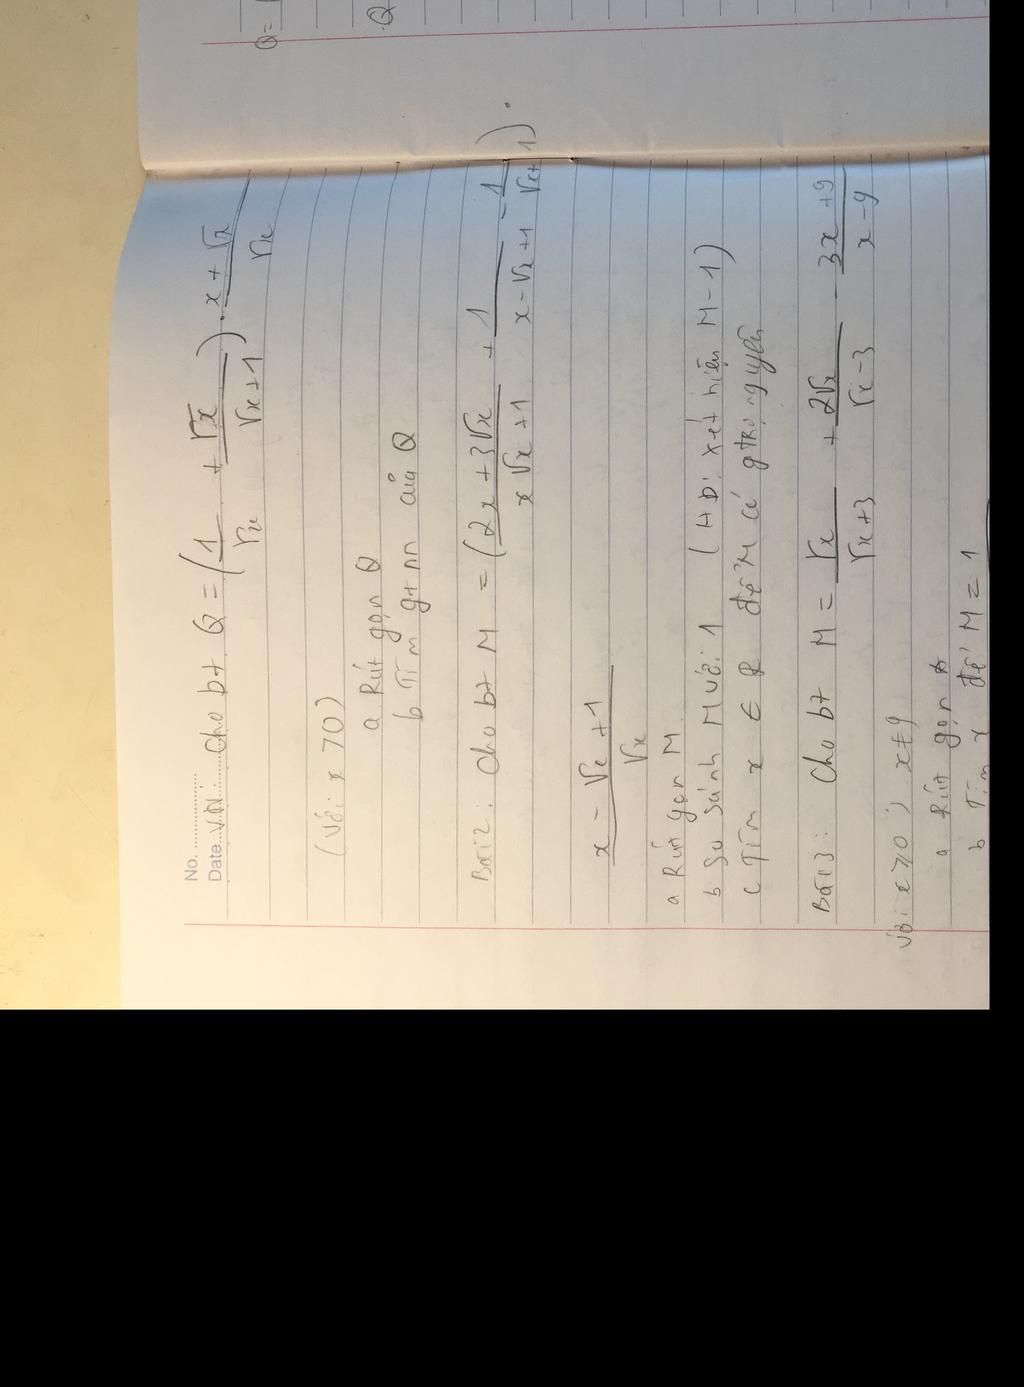 No.
Date VD: Cho bt Q = (1/√x + √x/√x+1) . x+√x/√x
(với x > 0)
a Rút gọn Q
b Tìm gtnn của Q
Bài 2: Cho bt M = (2x+3√x/x√x+1 + 1/x-√x+1 - 1/√x+1) .
x-√x+1/√x
a Rút gọn M
b So sánh M với 1 (HD: xét hiệu M-1)
c Tìm x ∈ R để M có gtrị nguyên
Bài 3: Cho bt M = √x/√x+3 + 2√x/√x-3 - 3x+9/x-9
với x ≥ 0; x ≠ 9
a Rút gọn
b Tìm x để M = 1
Q =
Q